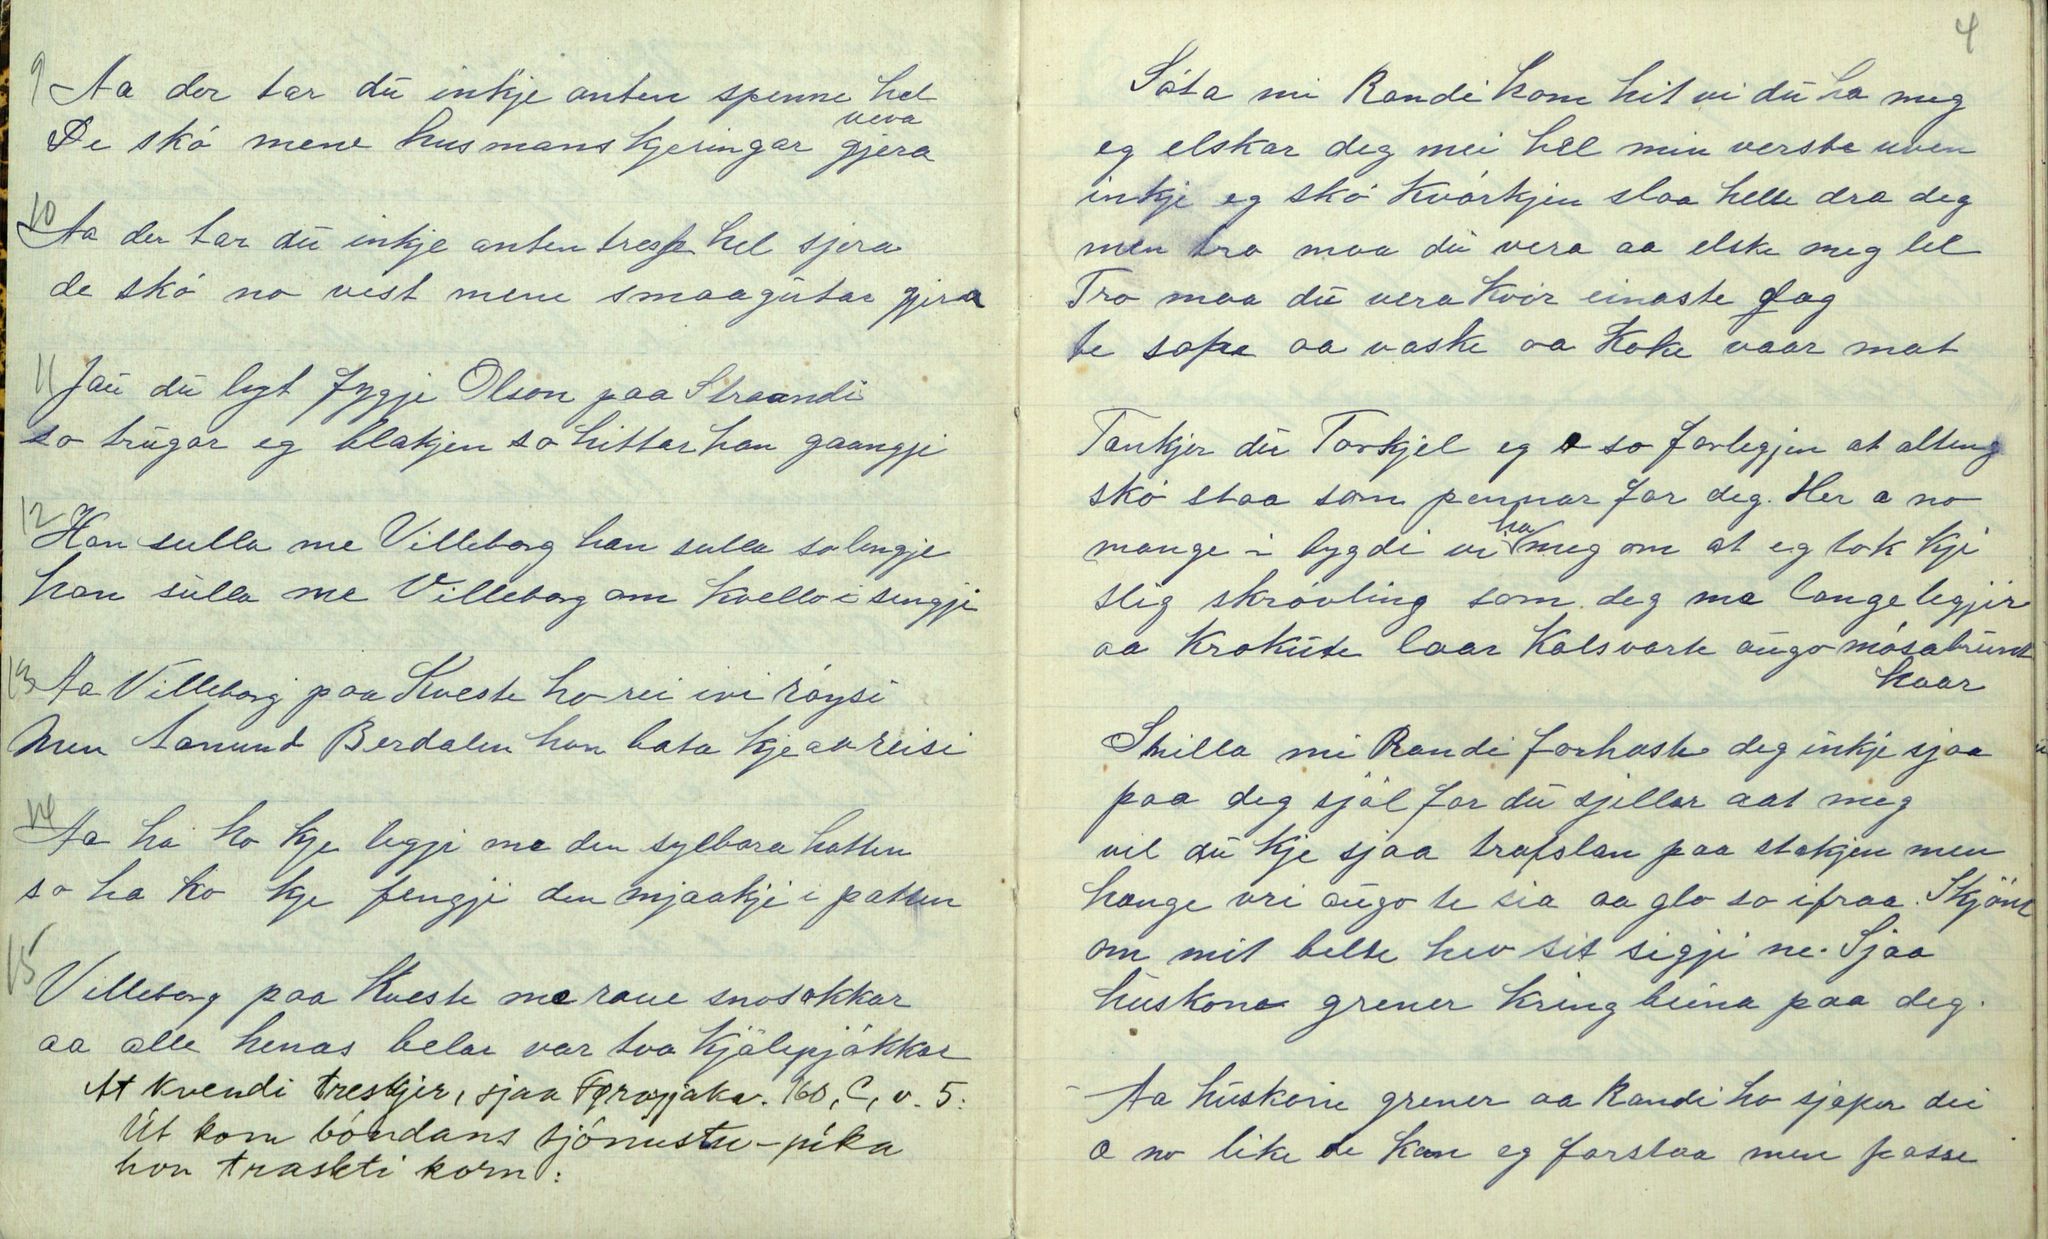 9 Aa der tar du inkje anten spenne hel
veva
De skó mene husmanskjeringar gjera
10 Aa der tar du inkje anten tresk hel sjera
de skó no vist mene smaagutar gjera
11 Jau du lyt fyggje Olson paa Straandi
so trugar eg blakjen so hittar han gaangji
12 Han sulla me Villeborg han sulla so lengje
han sulla me Villeborg om kvello i sengji
13 Aa Villeborg paa Kveste ho rei ivi röysi
Men Aamund Berdalen han bata kje aa reisi
14 Aa ha ho kje legji me den sylbora hatten
so ha ho kje fengji den mjaakji i patten
15 Villeborg paa Kveste me raue snosokkar
aa alle henas belar var tvo Kjölepjókkar
At kvendi treskjer, sjaa 160, C, v. 5:
Út kom bóndans tjónustu-pika
hon traskti korn:
4
Sóta mi Randi kom hit vi du ha meg
eg elskar deg mei hel min verste uven
inkje eg skó Kvórkjen slaa helle dra deg
men tro maa du vera aa elske meg lel
Tro maa du vera kvór einaste dag
te sope aa vaske aa Koke vaar mat
Tankjer du Torkjel eg o so forlegjen at alting
skó staa som pennar for deg. Her a no
mange i bygdi vi ha meg om at eg tok kji
slig skróvling som deg me lange legjir
aa Krokute laar Kolsvarte augo mósabrunt
haar
Stilla mi Randi forhaste deg inkje sjaa
paa deg sjöl for du sjeller aat meg
vil du kje sjaa trafslan paa stakjen men
hange vri augo te sia aa glo so ifraa. Skjönt
om mit belte hev sit sigji ne. Sjaa
huskona grener kring beina paa deg.
Aa huskone grener aa Randi ho sjeper dei
o no like de kan eg forstaa men passe